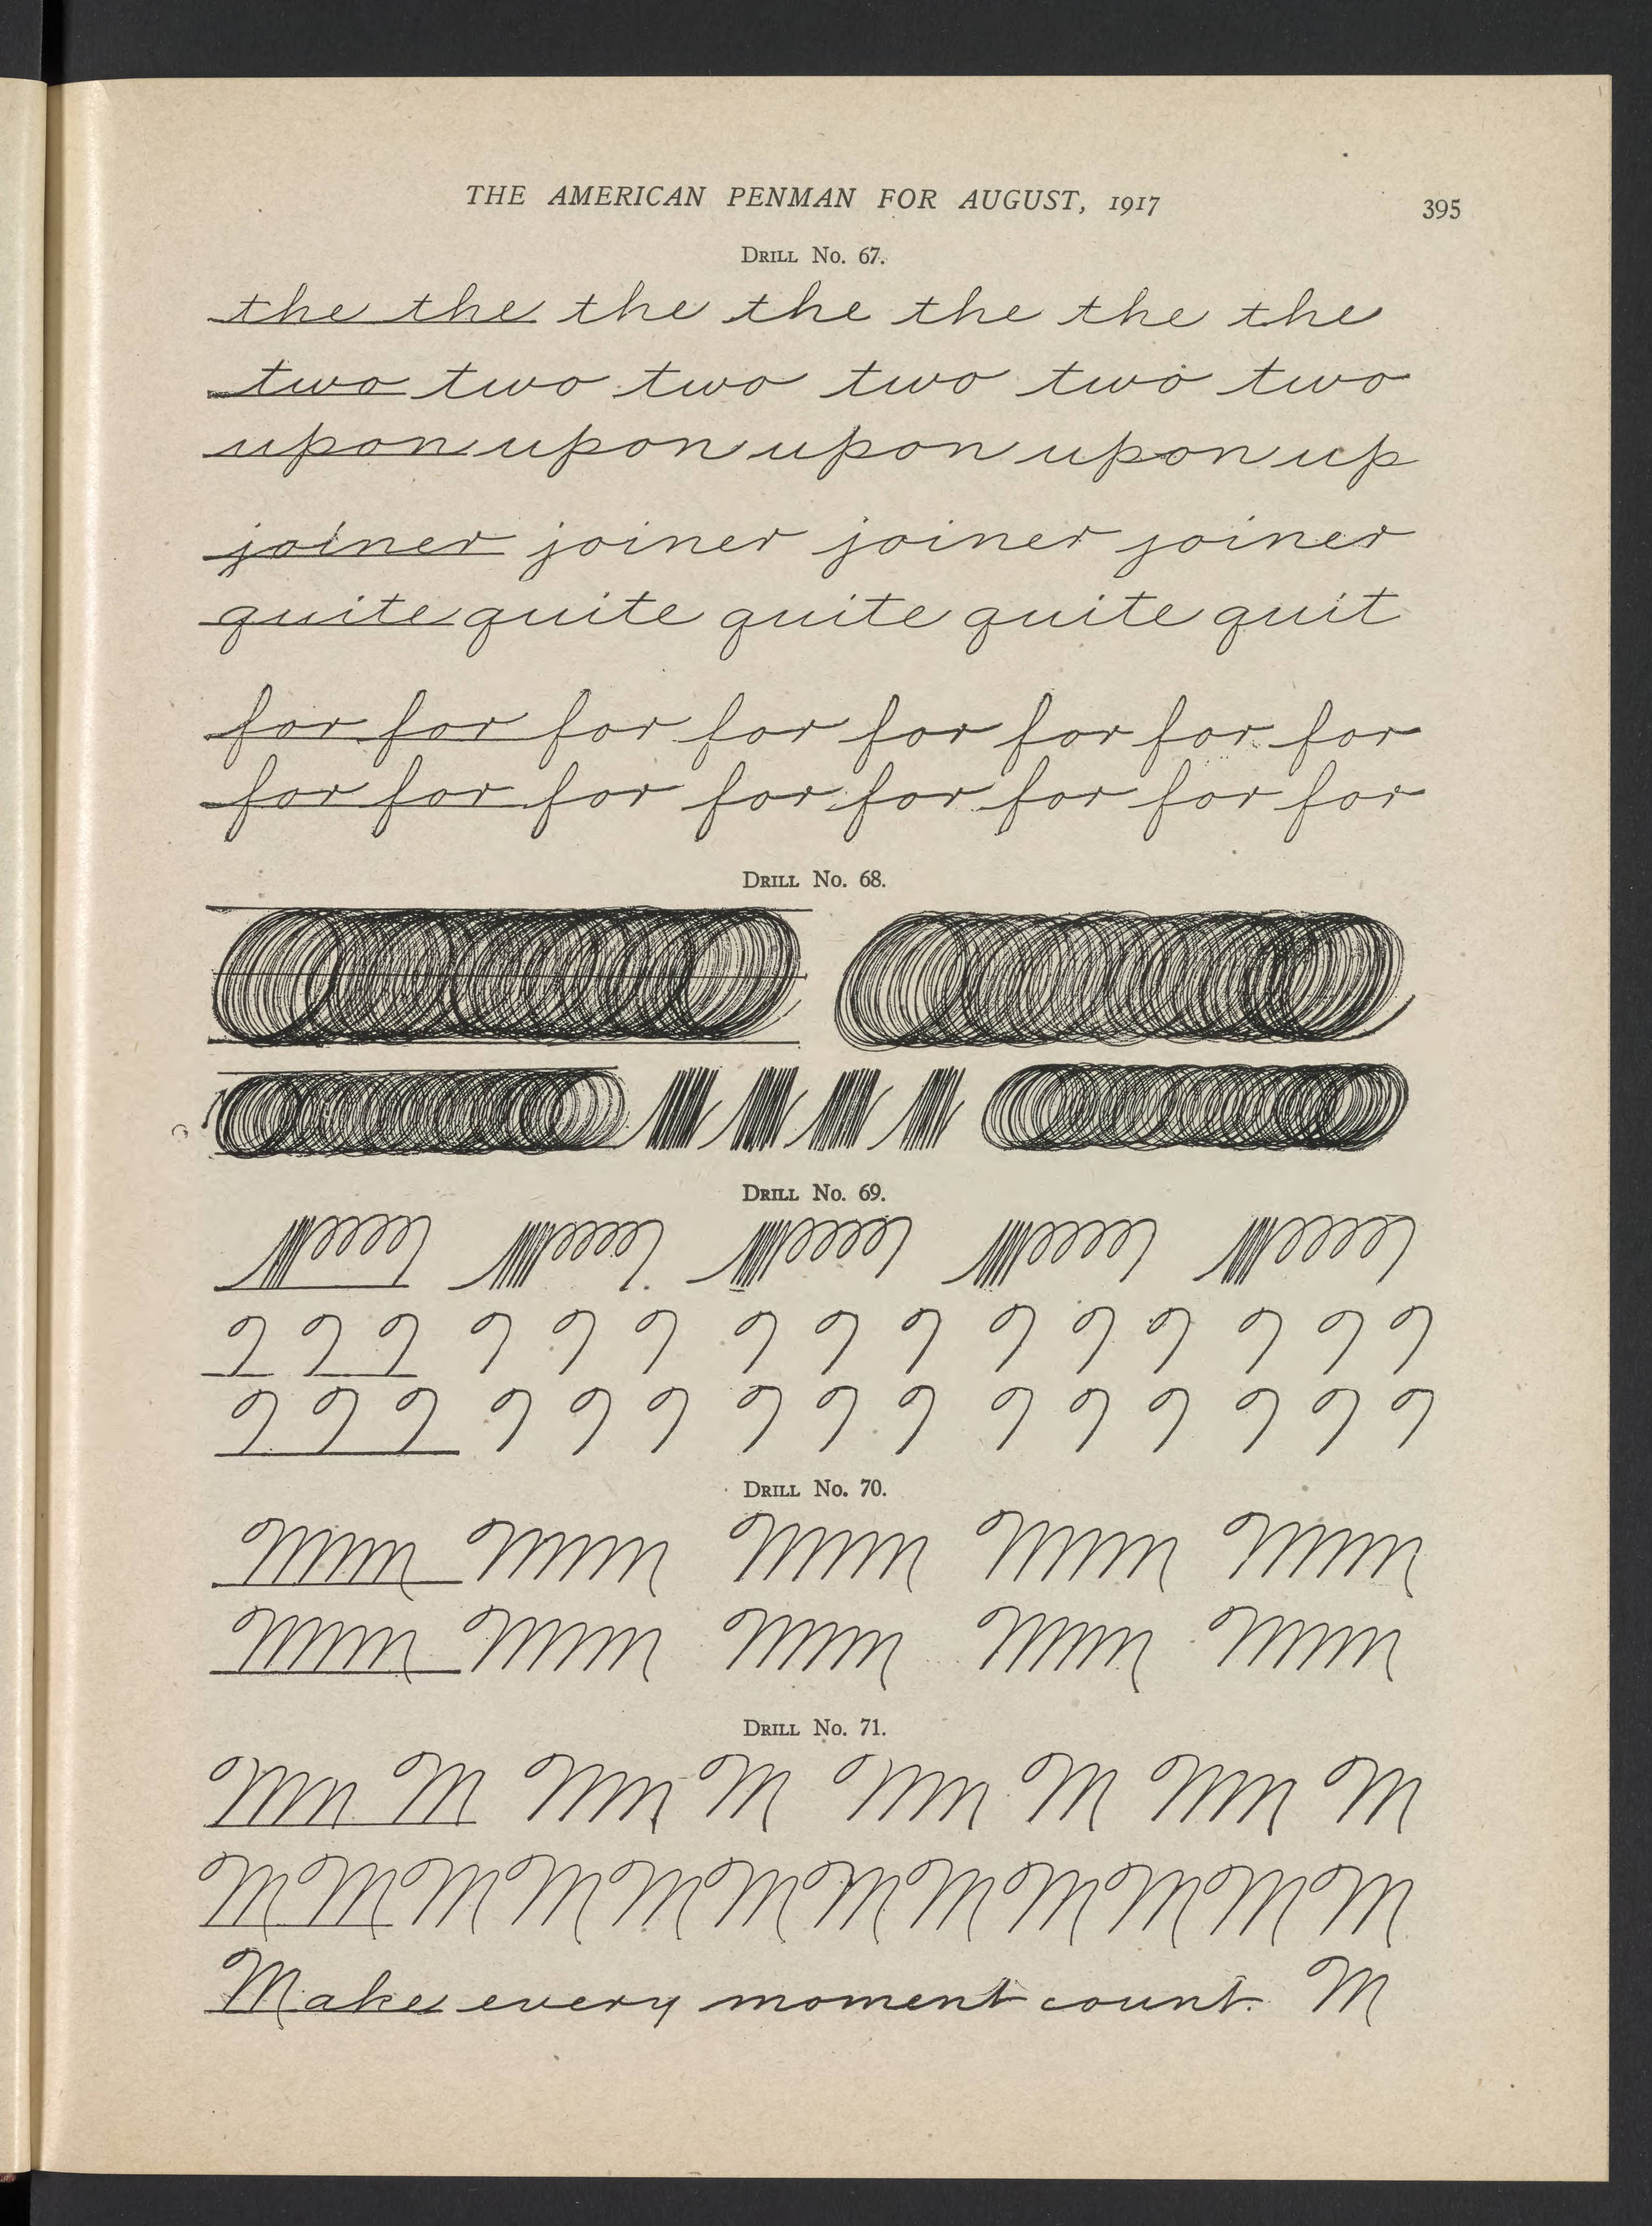 THE AMERICAN PENMAN FOR AUGUST, 1917 395
DRILL No. 67.
the the the the the the the
two two two two two two
upon upon upon upon up
joiner joiner joiner joiner
quite quite quite quite quit
for for for for for for for for
for for for for for for for for
DRILL No. 68.
DRILL No. 69.
DRILL No. 70.
DRILL No. 71.
M M M M M M M M
M M M M M M M M M M M M
Make every moment count. M